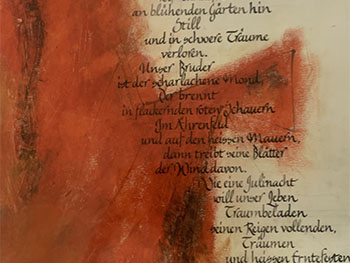 an blühenden Gärten hin
Still
und in schwere Träume
verloren.
Unser Bruder
ist der scharlachene Mond.
Der brennt
in flackernden roten Schauern
Im Ährenfeld
und auf den heissen Mauern,
dann treibt seine Blätter
der Wind davon.
Wie eine Julinacht
will unser Leben
Traumbeladen
seinen Reigen vollenden,
Träumen
und heissen Erntefesten